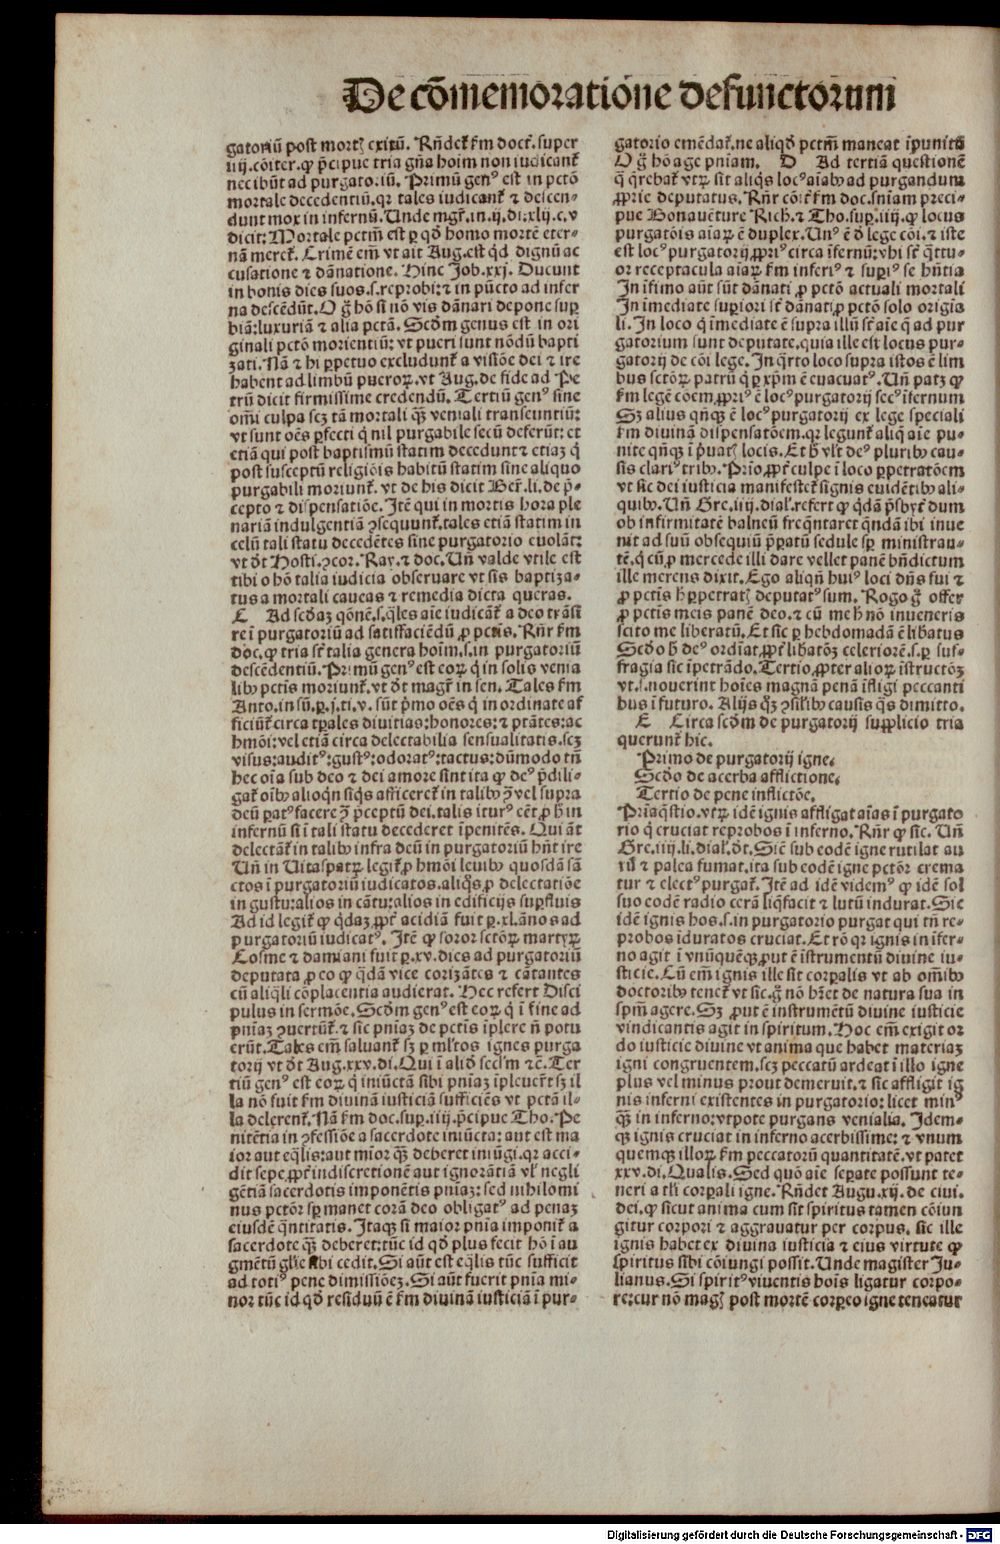 De cōmemoratiōne defunctorum
gatoriū post mortꝫ exitū. Rn̄det̄ ẜm doct̄. super
iiij. cōiter. ꝙ p̄cipue tria gn̄a hoim non iudicant̄
nec ibūt ad purgatoriū. Primū genꝰ est in pctō
mortale decedentiū. qꝛ tales iudicant̄ ⁊ descen-
dunt mox in infernū. Unde mgr̄. in .ij. di. xlij. c. v
dicit: Mortale pctm̄ est ꝑ qd̄ homo mortē eter-
nā meret̄. Crimē em̄ vt ait Aug. est qd̄ dignū ac
cusatione ⁊ dānatione. Hinc Job. xxj. Ducunt
in bonis dies suos. s. reprobi: ⁊ in pūcto ad infer
na descēdūt. O gͦ hō si nō vis dānari depone suꝑ
biā: luxuriā ⁊ alia pctā. Scd̄m genus est in ori
ginali pctō morientiū: vt pueri sunt nōdū bapti
zati. Nā ⁊ hi ꝑpetuo excludunt̄ a visiōe dei ⁊ ire
habent ad limbū pueroꝝ. vt Aug. de fide ad Pe
trū dicit firmissime credendū. Tertiū genꝰ sine
om̄i culpa scꝫ tā mortali qꝫ̄ veniali transeuntiū:
vt sunt oēs ꝑfecti q̇ nil purgabile secū deferūt: et
etiā qui post baptismū statim decedunt ⁊ etiaꝫ q̇
post susceptū religiōis habitū statim sine aliquo
purgabili moriunt̄. vt de his dicit Ber̄. li. de p̄-
cepto ⁊ dispensatiōe. Itē qui in mortis hora ple
nariā indulgentiā ꝯsequunt̄. tales etiā statim in
celū tali statu decedētes sine purgatorio euolāt:
vt dt̄ Hosti. ꝯcor. Ray. ⁊ doc. Un̄ valde vtile est
tibi o hō talia iudicia obseruare vt sis baptiza-
tus a mortali caueas ⁊ remedia dicta queras.
C Ad scd̄aꝫ qōnē. s. q̄les aīe iudicāt̄ a deo trāsi
re ī purgatoriū ad satisfaciēdū ꝓ pctis. Rn̄r ẜm
doc. ꝙ tria sūt talia genera hoīm. s. in purgatoriū
descēdentiū. Primū genꝰ est eoꝝ q̇ in solis venia
libꝰ pctis moriunt̄. vt dt̄ magr̄ in sen. Tales ẜm
Anto. in sū. ꝑ. j. ti. v. sūt pͥmo oēs q̇ in ordinate af
ficiūt̄ circa tꝑales diuitias: honores: ⁊ ptātes: ac
hmōi: vel etiā circa delectabilia sensualitatis. scꝫ
visus: auditꝰ: gustꝰ: odoratꝰ: tactus: dūmodo tn̄
hec oīa sub deo ⁊ dei amore sint ita ꝙ deꝰ p̄dili-
gat̄ oībꝰ alioqn̄ siq̇s afficeret̄ in talibꝰ ꝯ̄ vel supra
deū ꝑatꝰ facere ꝯ̄ p̄ceptū dei. talis iturꝰ eēt ꝓ hͦ in
infernū si ī tali statu decederet īpenitēs. Qui āt
delectāt̄ in talibꝰ infra deū in purgatoriū hn̄t ire
Un̄ in Uitaspatꝝ legit̄ ꝓ hmōi leuibꝰ quosdā sā
ctos ī purgatoriū iudicatos. aliq̇s ꝓ delectatiōe
in gustu: alios in cātu: alios in edificijs suꝑfluis
Ad id legit̄ ꝙ q̇daꝫ ꝓpt̄ acidiā fuit ꝑ. xl. ānos ad
purgatoriū iudicatꝰ. Itē ꝙ soror sctōꝝ martyꝝ
Cosme ⁊ damiani fuit ꝑ. xv. dies ad purgatoriū
deputata ꝓ eo ꝙ q̇dā vice corizātes ⁊ cātantes
cū aliq̄li cōplacentia audierat. Hec refert Disci
pulus in sermōe. Scd̄m genꝰ est eoꝝ q̇ ī fine ad
pn̄iaꝫ ꝯuertūt̄. ⁊ sic pn̄iaꝫ de pctis īplere n̄ potu
erūt. Tales em̄ saluant̄ sꝫ ꝑ ml̄tos ignes purga
torij vt dt̄ Aug. xxv. di. Qui ī aliō scl̄m ⁊c̄. Ter
tiū genꝰ est eoꝝ q̇ iniūctā sibi pn̄iaꝫ īpleuer̄t sꝫ il
la nō fuit ẜm diuinā iusticiā sufficiēs vt pctā il-
la delerent̄. Nā ẜm doc. suꝑ. iiij. p̄cipue Tho. Pe
nitētia in ꝯfessiōe a sacerdote iniūcta: aut est ma
ior aut eq̄lis: aut mīor qꝫ̄ deberet iniūgi. qꝛ acci-
dit sepe, ꝓpt̄ indiscretionē aut ignorātiā vl̓ negli
gētiā sacerdotis imponētis pn̄iaꝫ: sed nihilomi
nus pctōr sꝑ manet corā deo obligatꝰ ad penaꝫ
eiusdē q̄ntitatis. Itaqꝫ si maior pn̄ia imponit̄ a
sacerdote qꝫ̄ deberet: tūc id qd̄ plus fecit hō ī au
gmētū gl̄ie sibi cedit. Si aūt est eq̄lis tūc sufficit
ad totiꝰ pene dimissiōeꝫ. Si aūt fuerit pn̄ia mi-
nor tūc id qd̄ residuū ē ẜm diuinā iusticiā ī pur-
gatorio emēdat̄. ne aliqd̄ pctm̄ maneat īpunitū
O gͦ hō age pn̄iam. D Ad tertiā questionē
q̄ q̄rebat̄ vtꝝ sit aliq̇s locꝰ aīabꝰ ad purgandum
ꝓprie deputatus. Rn̄r cōit̄ ẜm doc. sn̄iam preci-
pue Bonauēture Rich. ⁊ Tho. suꝑ. iiij. ꝙ locus
purgatōis aīaꝝ ē duplex. Unꝰ ē d̄ lege cōi. ⁊ iste
est locꝰ purgatorij ꝓpriꝰ circa īfernū: vbi st̄ q̄ttu-
or receptacula aīaꝝ ẜm inferiꝰ ⁊ suꝑiꝰ se hn̄tia
In īfimo aūt sūt dānati ꝓ pctō actuali mortali
In īmediate suꝑiori st̄ dānati ꝓ pctō solo origīa
li. In loco q̇ īmediate ē supra illū st̄ aīe q̄ ad pur
gatorium sunt deputate. quia ille est locus pur-
gatorij de cōi lege. In q̄rto loco supra istos ē lim
bus sctōꝝ patrū q̇ ꝑ xp̄m ē euacuatꝰ. Un̄ patꝫ ꝙ
ẜm legē cōem ꝓpriꝰ ē locꝰ purgatorij secꝰ īfernum
Sꝫ alius qn̄qꝫ ē locꝰ purgatorij ex lege speciali
ẜm diuinā dispensatōem. qꝛ legunt̄ aliq̄ aīe pu-
nite qn̄qꝫ ī pͥuatꝭ locis. Et hͦ vl̓t deꝰ pluribꝰ cau-
sis clariꝰ tribꝰ. Prīo ꝓpt̄ culpe ī loco ꝑpetratōem
vt sic dei iusticia manifestet̄ signis euidētibꝰ ali-
quibꝰ. Un̄ Gre. iiij. dial̓. refert ꝙ q̇dā p̄sbyt̄ dum
ob infirmitatē balneū freq̄ntaret quēdā ibi inue
nit ad suū obsequiū p̄ꝑatū sedule sꝑ ministran-
tē. q̇ cū ꝓ mercede illi dare vellet panē bn̄dictum
ille merens dixit. Ego aliqn̄ huiꝰ loci dn̄s fui ⁊
ꝓ pctis hͥ ꝑpetratꝭ deputatꝰ sum. Rogo gͦ offer
ꝓ pctis meis panē deo. ⁊ cū me hͥ nō inueneris
scito me liberatū. Et sic ꝑ hebdomadā ē lib̄atus
Scd̄o hͦ deꝰ ordīat ꝓpt̄ lib̄atōꝫ celeriorē. s. ꝑ suf-
fragia sic īpetrādo. Tertio ꝓpter alioꝝ īstructōꝫ
vt. s. nouerint hoīes magnā penā īfligi peccanti
bus ī futuro. Alijs q̇ꝫ ꝯsil̓ibꝰ causis q̄s dimitto.
E Circa scd̄m de purgatorij supplicio tria
querunt̄ hic.
Primo de purgatorij igne.
Scd̄o de acerba afflictione.
Tertio de pene inflictōe.
Prīa q̄stio. vtꝝ idē ignis affligat aīas ī purgato
rio q̇ cruciat reprobos ī inferno. Rn̄r ꝙ sic. Un̄
Gre. iiij. li. dial̓. dt̄. Sic̄ sub eodē igne rutilat au
rū ⁊ palea fumat. ita sub eodē igne pctōr crema
tur ⁊ electꝰ purgat̄. Itē ad idē videmꝰ ꝙ idē sol
suo eodē radio cerā liq̄facit ⁊ lutū indurat. Sic
idē ignis hos. s. in purgatorio purgat qui tn̄ re-
probos īduratos cruciat. Et rō qꝛ ignis in īfer-
no agit ī vnūquēqꝫ ꝓut ē īstrumentū diuine iu-
sticie. Cū em̄ ignis ille sit corꝑalis vt ab om̄ibꝰ
doctoribꝰ tenet̄ vt sic. gͦ nō hr̄et de natura sua in
spm̄ agere. Sꝫ ꝓut ē instrumētū diuine iusticie
vindicantis agit in spiritum. Hoc em̄ exigit or
do iusticie diuine vt anima que habet materiaꝫ
igni congruentem. scꝫ peccatū ardeat ī illo igne
plus vel minus prout demeruit. ⁊ sic affligit ig
nis inferni existentes in purgatorio: licet minꝰ
qꝫ̄ in inferno: vtpote purgans venialia. Idem-
qꝫ ignis cruciat in inferno acerbissime: ⁊ vnum
quemqꝫ illoꝝ ẜm peccatorū quantitatē. vt patet
xxv. di. Qualis. Sed quō aīe seꝑate possunt te-
neri a tl̓i corꝑali igne. Rn̄det Augu. xij. de ciui.
dei. ꝙ sicut anima cum sit spiritus tamen cōiun
gitur corpori ⁊ aggrauatur per corpus. sic ille
ignis habet ex diuina iusticia ⁊ eius virtute ꝙ
spiritus sibi cōiungi possit. Unde magister Ju-
lianus. Si spiritꝰ viuentis hoīs ligatur corpo-
re: cur nō magꝭ post mortē corꝑeo igne teneatur
Digitalisierung gefördert durch die Deutsche Forschungsgemeinschaft - DFG